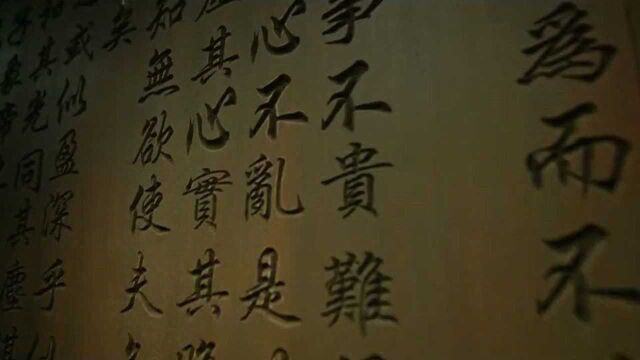 為而不
爭不貴難
心不亂是
其心實其
知無欲使夫
矣
或似盈深乎
其光同其塵
子象帝